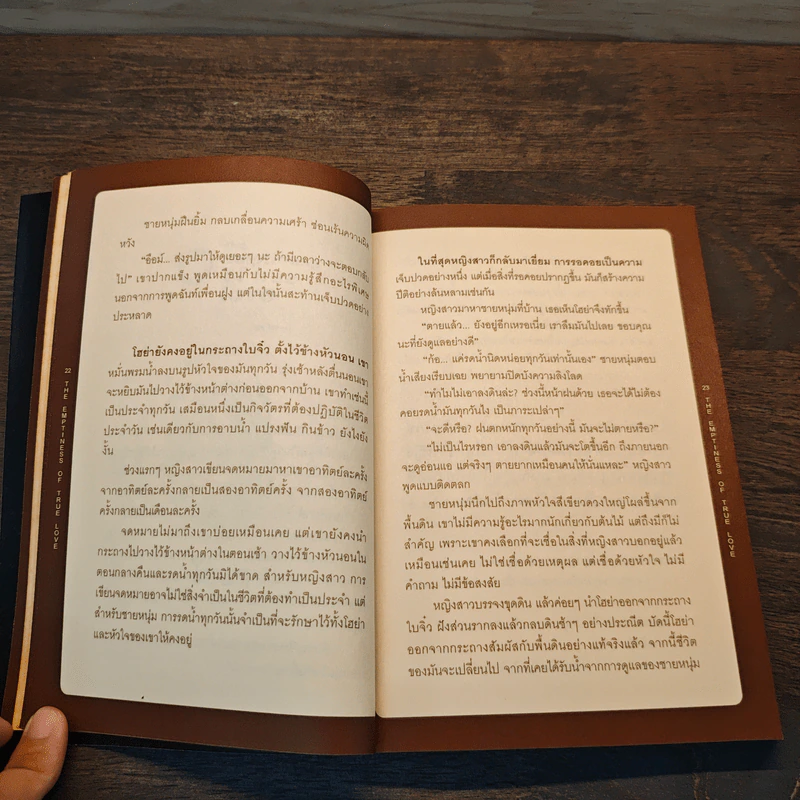 ชายหนุ่มฝืนยิ้ม กลบเกลื่อนความเศร้า ซ่อนเร้นความผิด
หวัง
“อือม์... ส่งรูปมาให้ดูเยอะๆ นะ ถ้ามีเวลาว่างจะตอบกลับ
ไป” เขาปากแข็ง พูดเหมือนกับไม่มีความรู้สึกอะไรพิเศษ
นอกจากการพูดฉันท์เพื่อนฝูง แต่ในใจนั้นสะท้านเจ็บปวดอย่าง
ประหลาด
โฮย่ายังคงอยู่ในกระถางใบจิ๋ว ตั้งไว้ข้างหัวนอน เขา
หมั่นพรมน้ำลงบนรูปหัวใจของมันทุกวัน รุ่งเช้าหลังตื่นนอนเขา
จะหยิบมันไปวางไว้ข้างหน้าต่างก่อนออกจากบ้าน เขาทำเช่นนี้
เป็นประจำทุกวัน เสมือนหนึ่งเป็นกิจวัตรที่ต้องปฏิบัติในชีวิต
ประจำวัน เช่นเดียวกับการอาบน้ำ แปรงฟัน กินข้าว ยังไงยัง
งั้น
ช่วงแรกๆ หญิงสาวเขียนจดหมายมาหาเขาอาทิตย์ละครั้ง
จากอาทิตย์ละครั้งกลายเป็นสองอาทิตย์ครั้ง จากสองอาทิตย์
ครั้งกลายเป็นเดือนละครั้ง
จดหมายไม่มาถึงเขาบ่อยเหมือนเคย แต่เขายังคงนำ
กระถางไปวางไว้ข้างหน้าต่างในตอนเช้า วางไว้ข้างหัวนอนใน
ตอนกลางคืนและรดน้ำทุกวันมิได้ขาด สำหรับหญิงสาว การ
เขียนจดหมายอาจไม่ใช่สิ่งจำเป็นในชีวิตที่ต้องทำเป็นประจำ แต่
สำหรับชายหนุ่ม การรดน้ำทุกวันนั้นจำเป็นที่จะรักษาไว้ทั้งโฮย่า
และหัวใจของเขาให้คงอยู่
22 THE EMPTINESS OF TRUE LOVE
ในที่สุดหญิงสาวก็กลับมาเยี่ยม การรอคอยเป็นความ
เจ็บปวดอย่างหนึ่ง แต่เมื่อสิ่งที่รอคอยปรากฏขึ้น มันก็สร้างความ
ปีติอย่างล้นหลามเช่นกัน
หญิงสาวมาหาชายหนุ่มที่บ้าน เธอเห็นโฮย่าจึงทักขึ้น
“ตายแล้ว... ยังอยู่อีกเหรอเนี่ย เราลืมมันไปเลย ขอบคุณ
นะที่ยังดูแลอย่างดี”
“ก้อ... แค่รดน้ำนิดหน่อยทุกวันเท่านั้นเอง” ชายหนุ่มตอบ
น้ำเสียงเรียบเฉย พยายามปิดบังความลิงโลด
“ทำไมไม่เอาลงดินล่ะ? ช่วงนี้หน้าฝนด้วย เธอจะได้ไม่ต้อง
คอยรดน้ำมันทุกวันไง เป็นภาระเปล่าๆ”
“จะดีหรือ? ฝนตกหนักทุกวันอย่างนี้ มันจะไม่ตายหรือ?”
“ไม่เป็นไรหรอก เอาลงดินแล้วมันจะโตขึ้นอีก ถึงภายนอก
จะดูอ่อนแอ แต่จริงๆ ตายยากเหมือนคนให้นั่นแหละ” หญิงสาว
พูดแบบติดตลก
ชายหนุ่มนึกไปถึงภาพหัวใจสีเขียวดวงใหญ่โผล่ขึ้นจาก
พื้นดิน เขาไม่มีความรู้อะไรมากนักเกี่ยวกับต้นไม้ แต่ถึงมีก็ไม่
สำคัญ เพราะเขาคงเลือกที่จะเชื่อในสิ่งที่หญิงสาวบอกอยู่แล้ว
เหมือนเช่นเคย ไม่ใช่เชื่อด้วยเหตุผล แต่เชื่อด้วยหัวใจ ไม่มี
คำถาม ไม่มีข้อสงสัย
หญิงสาวบรรจงขุดดิน แล้วค่อยๆ นำโฮย่าออกจากกระถาง
ใบจิ๋ว ฝังส่วนรากลงแล้วกลบดินช้าๆ อย่างประณีต บัดนี้โฮย่า
ออกจากกระถางสัมผัสกับพื้นดินอย่างแท้จริงแล้ว จากนี้ชีวิต
ของมันจะเปลี่ยนไป จากที่เคยได้รับน้ำจากการดูแลของชายหนุ่ม
23 THE EMPTINESS OF TRUE LOVE